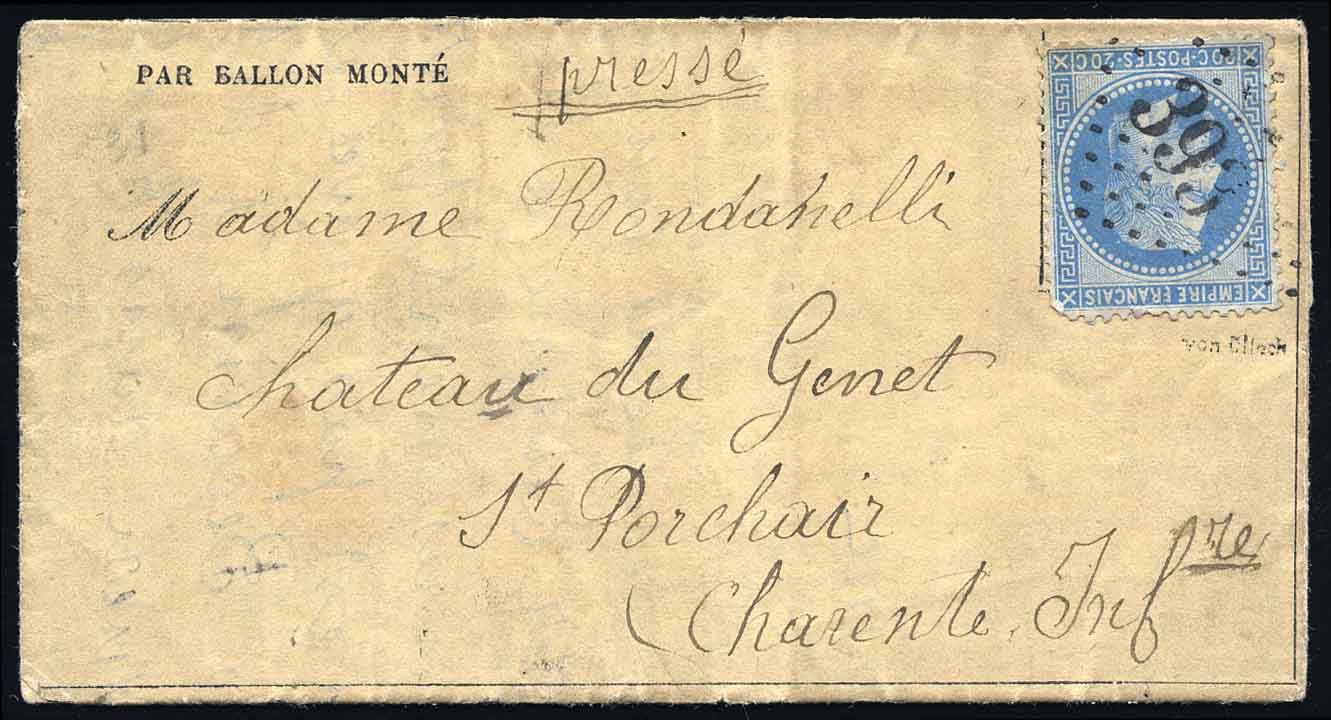 PAR BALLON MONTÉ
pressé
20C·POSTES·20C
EMPIRE FRANÇAIS
Madame Rondahelli
Chateau du Genet
St Porchair
Charente. Infre